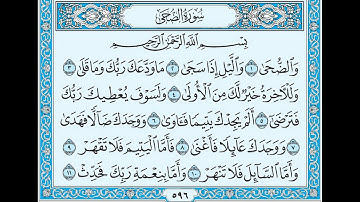 سُورَةُ الضُّحَى
بِسْمِ اللَّهِ الرَّحْمَٰنِ الرَّحِيمِ
وَالضُّحَى ۝١ وَالَّيْلِ إِذَا سَجَى ۝٢ مَا وَدَّعَكَ رَبُّكَ وَمَا قَلَى ۝٣
وَلَلْآخِرَةُ خَيْرٌ لَّكَ مِنَ الْأُولَى ۝٤ وَلَسَوْفَ يُعْطِيكَ رَبُّكَ
فَتَرْضَى ۝٥ أَلَمْ يَجِدْكَ يَتِيمًا فَآوَى ۝٦ وَوَجَدَكَ ضَآلًّا فَهَدَى
۝٧ وَوَجَدَكَ عَآئِلًا فَأَغْنَى ۝٨ فَأَمَّا الْيَتِيمَ فَلَا تَقْهَرْ ۝٩
وَأَمَّا السَّآئِلَ فَلَا تَنْهَرْ ۝١٠ وَأَمَّا بِنِعْمَةِ رَبِّكَ فَحَدِّثْ ۝١١
٥٩٦